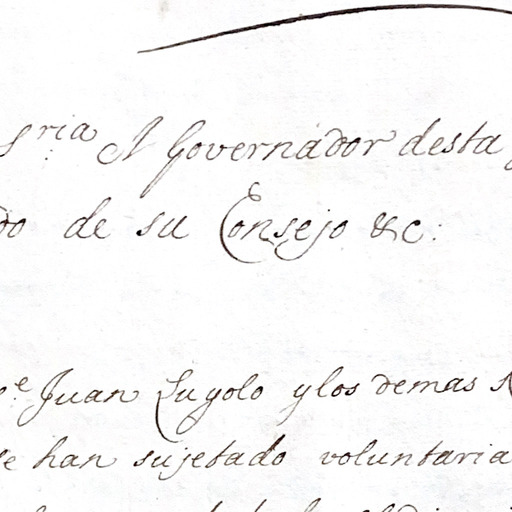 Sria A Governador desta
do de su Consejo &c:
e Juan Lugolo y los demas
se han sujetado voluntaria